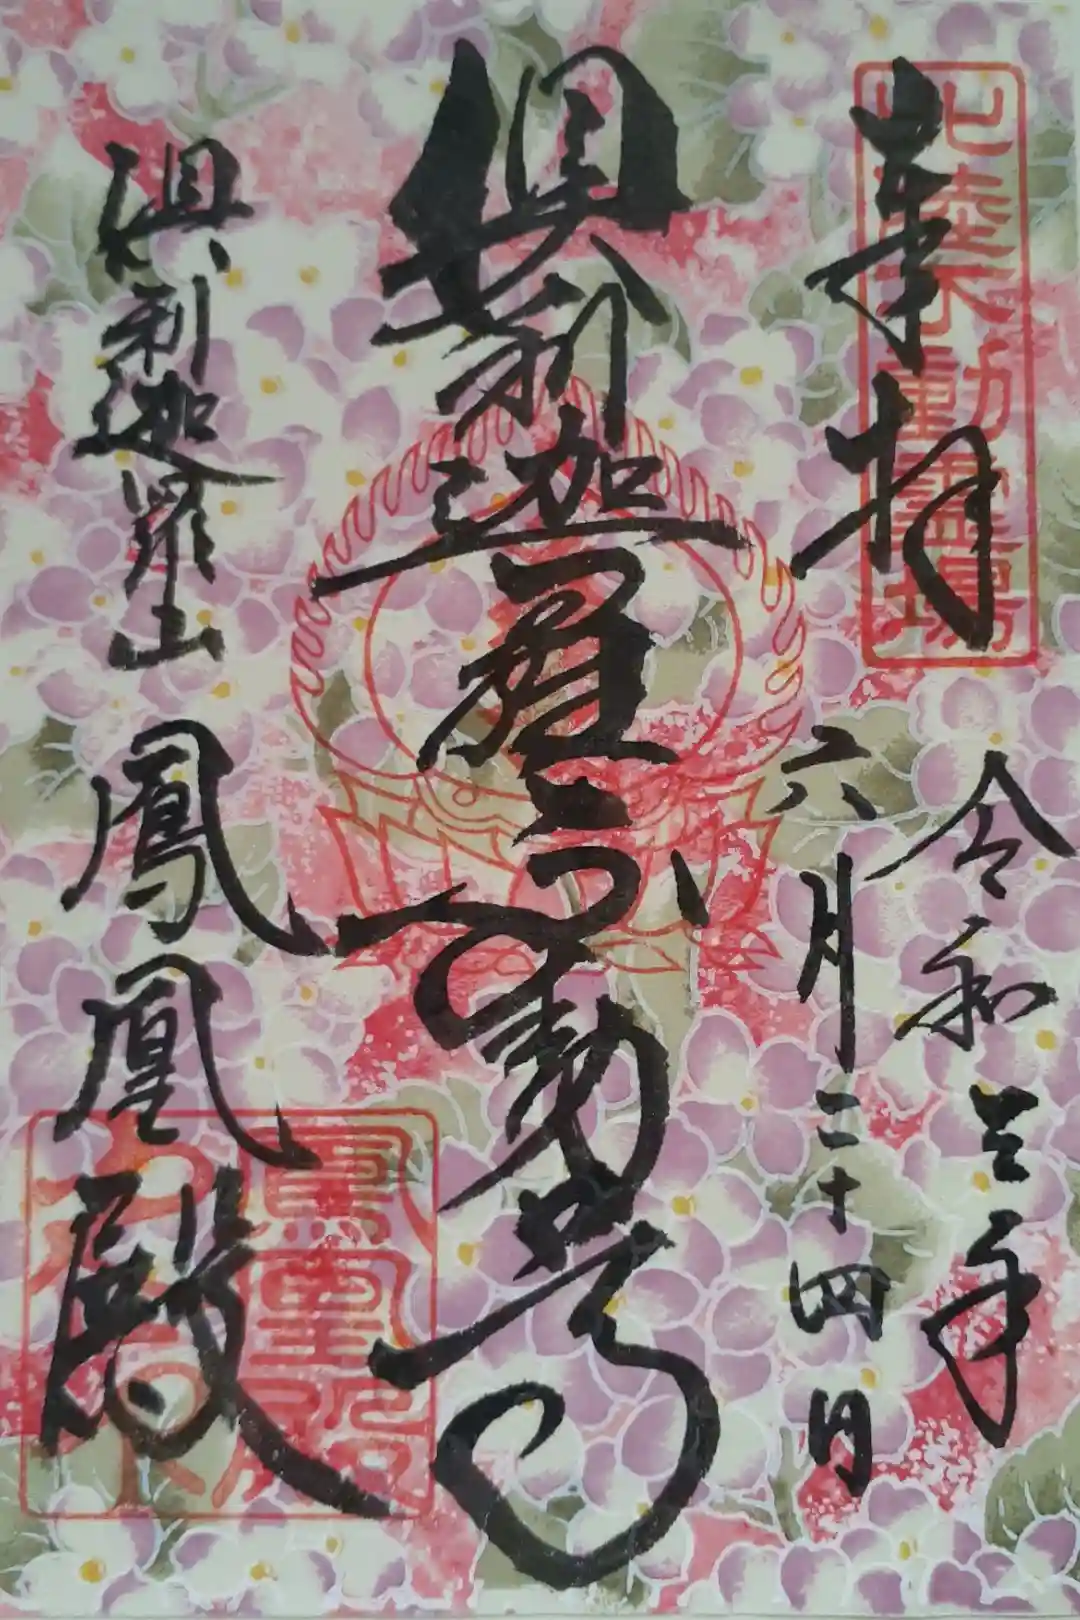 奉拝
北陸不動霊場
令和三年
六月二十四日
倶利迦羅不動尊
倶利迦羅山
鳳凰殿